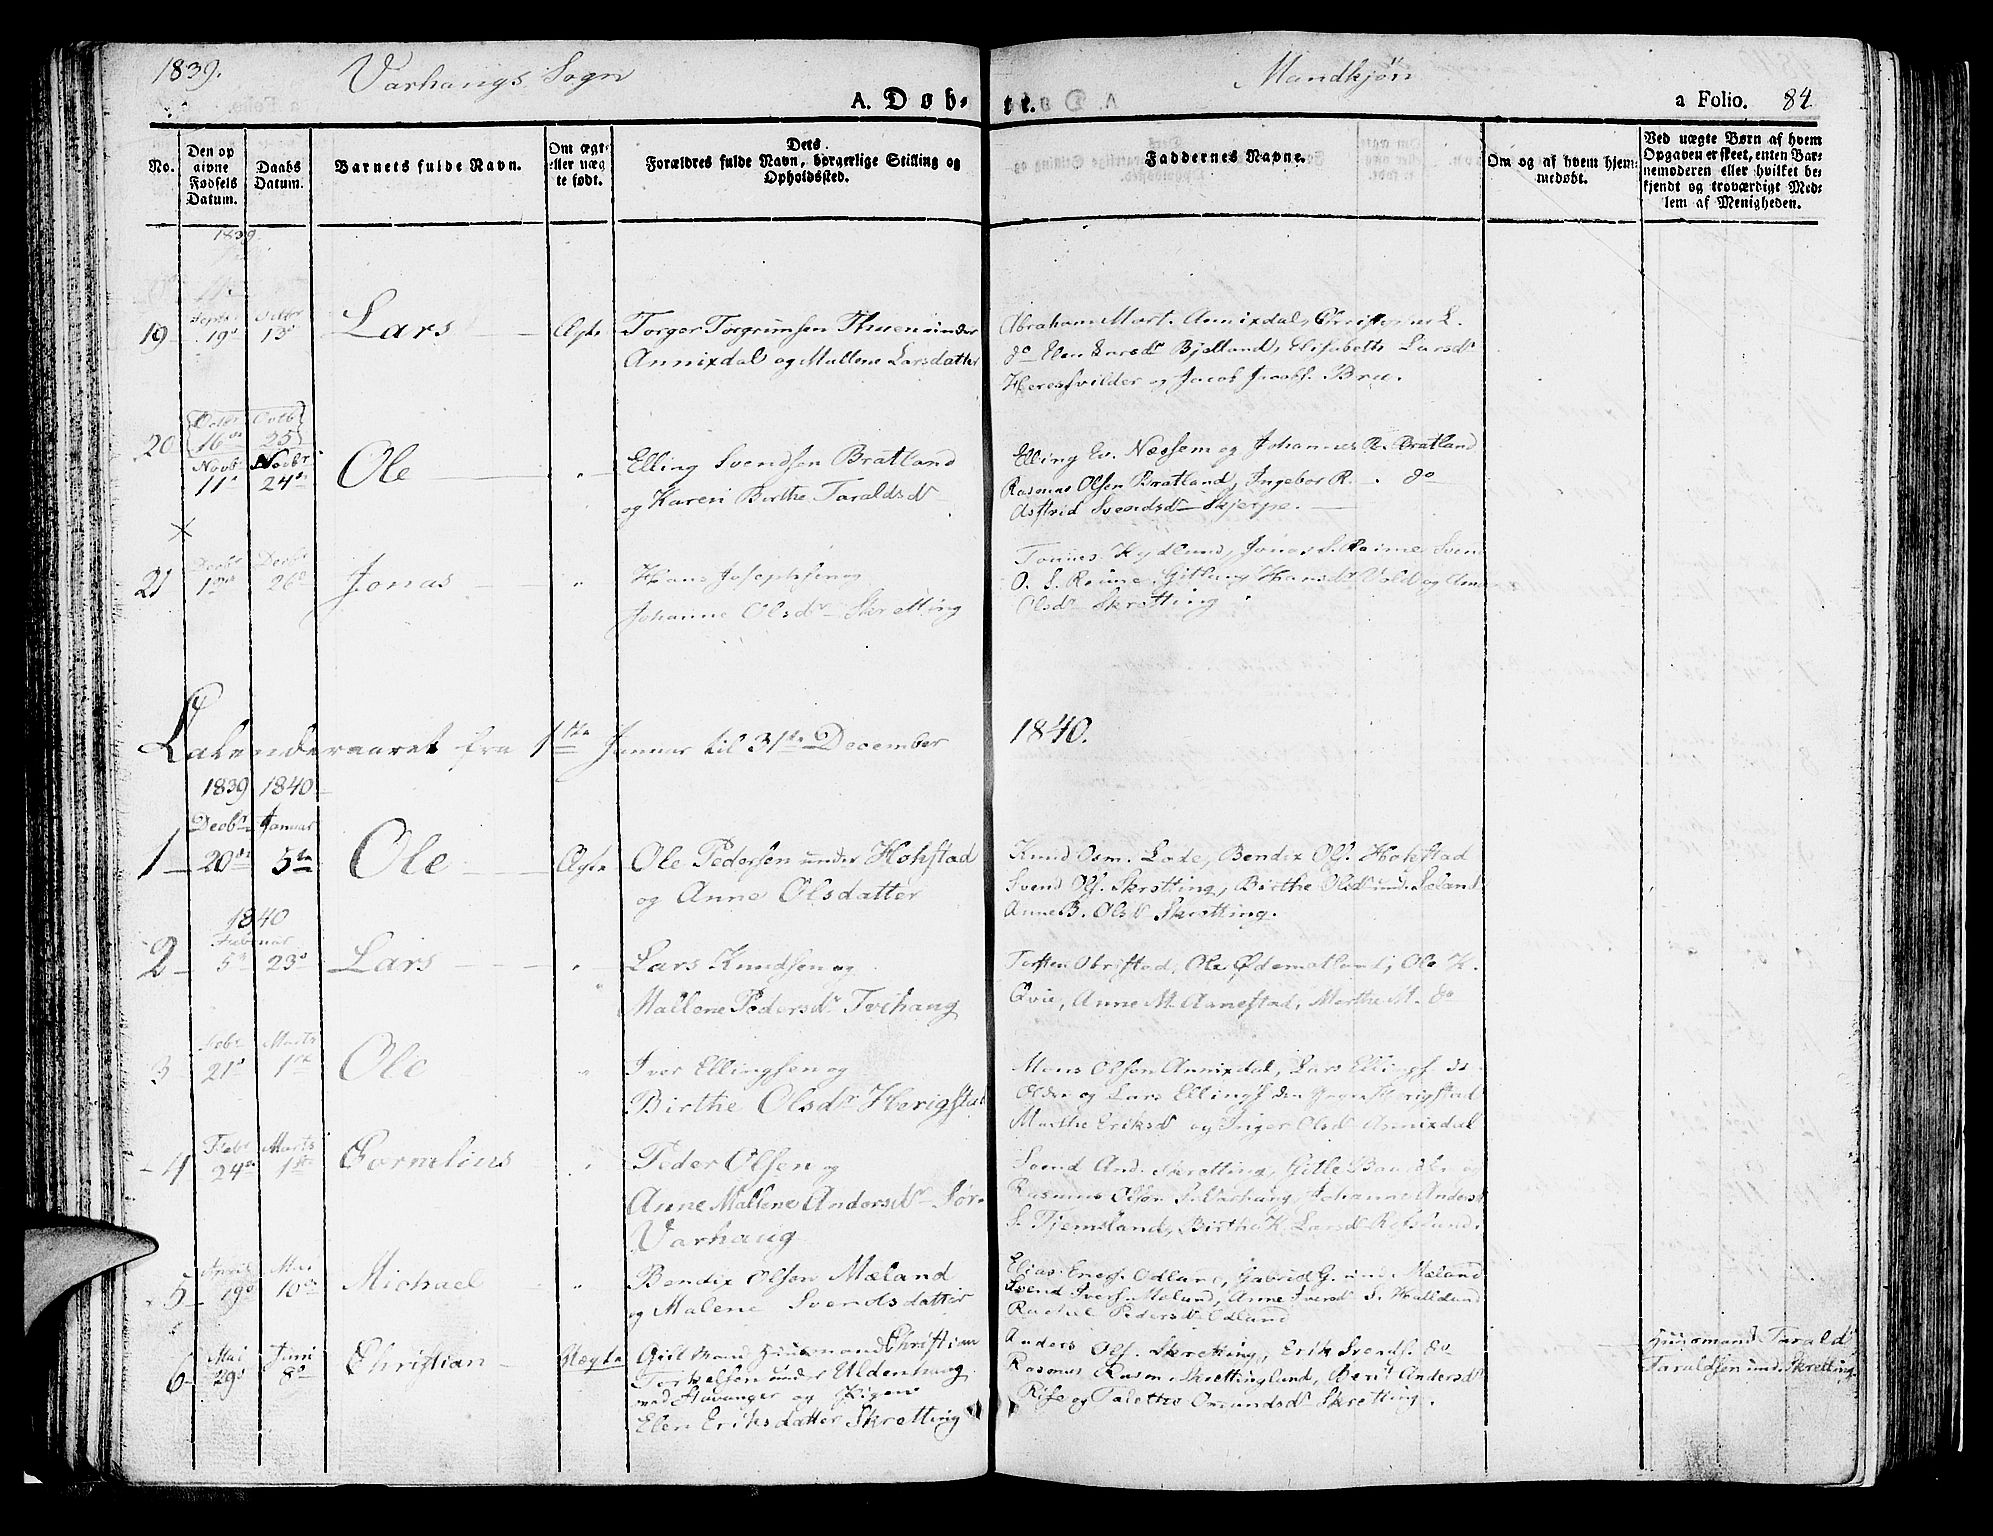 1839. Varhaugs Sogn Mandkjøn
A. Døbte. a Folio. 84
No. Den opgivne Fødsels Datum. Daabs Datum. Barnets fulde Navn. Om ægte eller uægte født. Dets Forældres fulde Navn, borgerlige Stilling og Opholdssted. Faddernes Navne. Om og af hvem hjemmedøbt. Ved uægte Børn af hvem Opgaven er skeet, enten Barnemoderen eller hvilket bekjendt og troværdigt Medlem af Menigheden.
1839
19 Septr 19de Octbr 13de Lars Ægte Torger Torgrimsen Thuen under
Annixdal og Mallene Larsdatter
Abraham Mort. Annixdal,
do Elen Bjelland, Elisabeth Larsdr
og Jacob Jacobs. Bru.
20 Octbr 16de Octb 25
Novbr 11te Novbr 24de Ole " Elling Svendsen Bratland
og Karen Birthe Taraldsdr
Elling Ev. Næssem og Johannes R. Bratland
Rasmus Olsen Bratland, Ingebor R. do
Astrid Svendsdr Skjerpe.
21 Decbr Decbr 26de Jonas " Hans Josephsen og
Johanne Olsdr Skretting
Tønnes Hydland, Jonas S. Reime Sven
O. S. Reime, Hansdr Vold og
Olsdr Skretting.
Calenderaaret fra 1ste Januar til 31te December 1840.
1839 1840
1 Decbr 20de Januar 5te Ole Ægte Ole Pedersen under Hohstad
og Anne Olsdatter
Knud Osm. Lode, Bendix Ols. Hohstad
Svend Ols. Skretting, Birthe Olsdr und.
Anne B. Olsdr Skretting.
1840
2 Februar 5te 23de Lars " Lars Knudsen og
Mallene Pedersdr Tvihaug
Torsten Obristad, Ole Ødemotland, Ole K.
Qvie, Anne M. Aanestad, Marthe M. do
3 Febr 21de Marts 1ste Ole " Iver Ellingsen og
Birthe Olsdr Herigstad
Mons Olsen Annixdal, Lars Ellings. den
Ældre og Lars Ellings. den Yngre Herigstad
Marthe Eriksdr og Inger Olsdr Annixdal
4 Febr 24de Marts 1ste Cornelius " Peder Olsen og
Anne Mallene Andersdr Sør
Varhaug
Svend And. Skretting, Gitle
Rasmus Olsen S. Varhaug, Johanne Anders
S. Tjemsland, Birthe K. Larsdr
5 April 19de Mai 10de Michael " Bendix Olsen Mæland
og Malene Svendsdatter
Elias Odland, Gabriel G. und. Mæland
Svend Ivers. Mæland, Anne
Rachel Pedersdr Odland
6 Mai 29de Juni 8de Christian Uægte Gift Mand Huusmand Christian
Torkelsen under Uldenhaug
ved Stavanger og Pigen
Elen Eriksdatter Skretting
Anders Ols. Skretting, Erik Svends. do
Rasmus Rasm. Skrettingland, Berit Andersdr
Rise og Talette Omundsdr Skretting.
Huusmand Tarald
Taraldsen und. Skretting